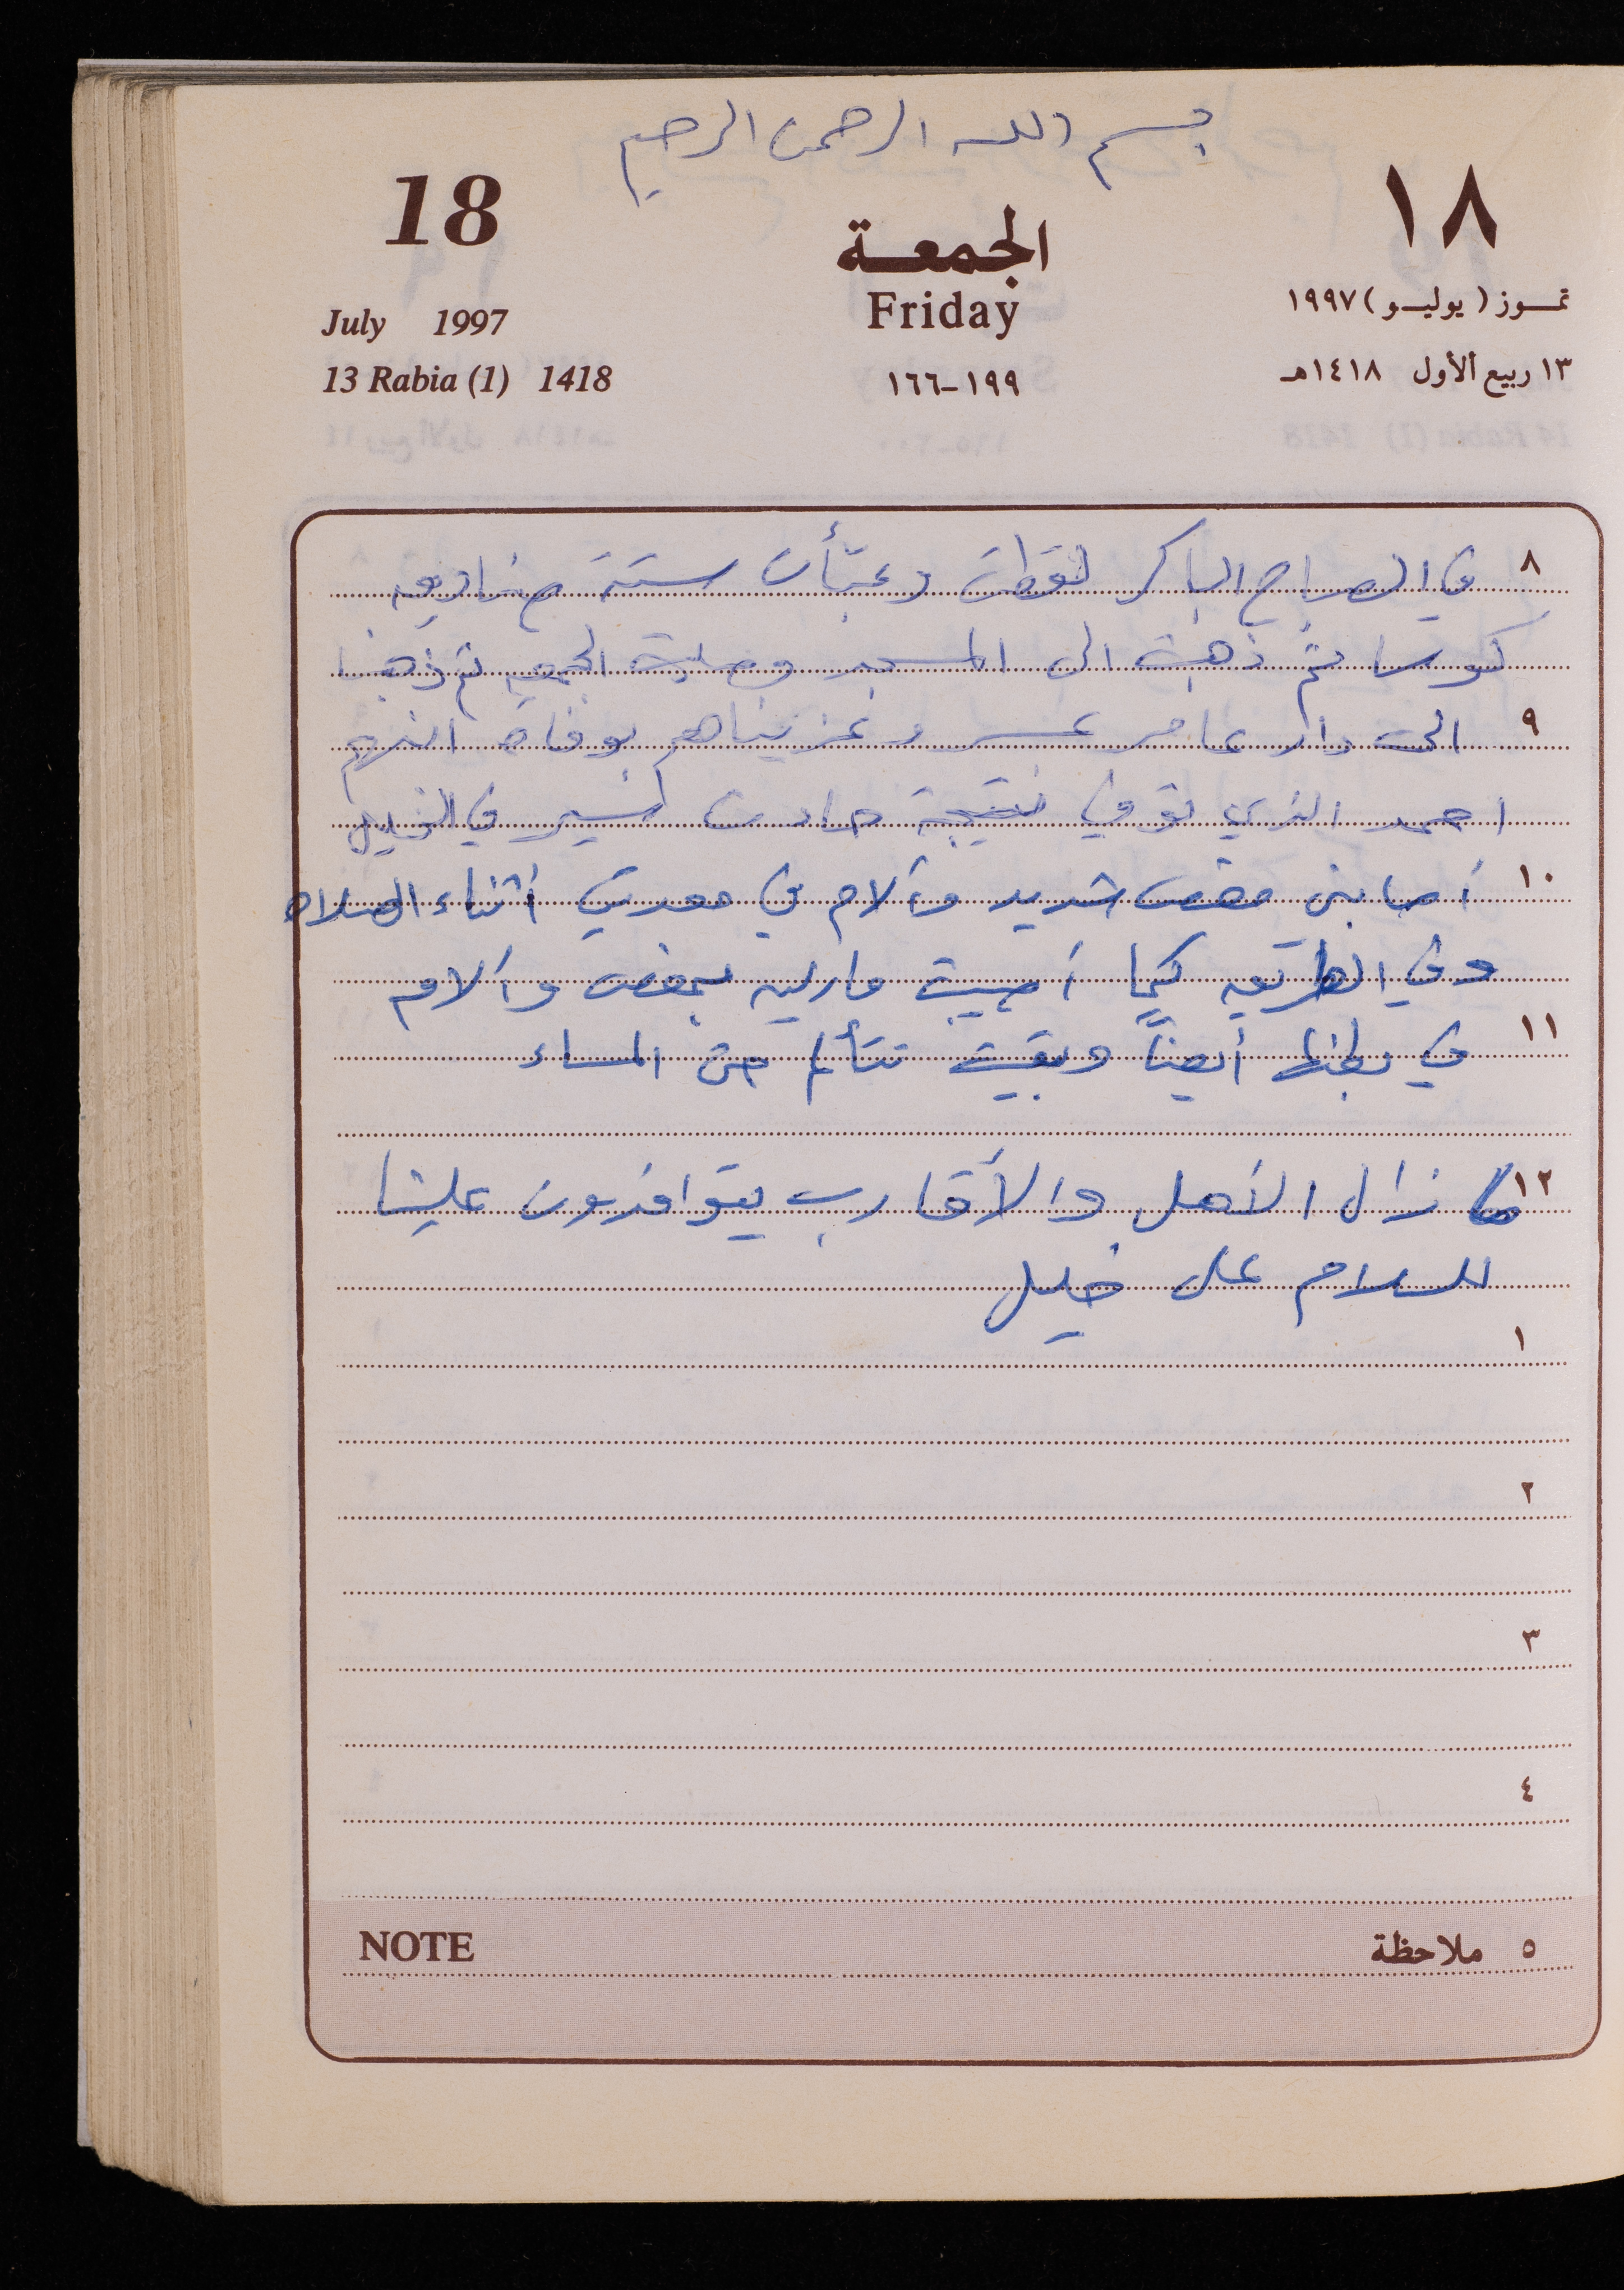 بسم الله الرحمن الرحيم
18
الجمعة
١٨
July 1997
Friday
تمـوز (يوليـو) ١٩٩٧
13 Rabia (1) 1418
١٩٩-١٦٦
١٣ ربيع الأول ١٤١٨هـ
٨ في الصباح الباكر لقطت وعبأت ستة صناديق
كوسا ثم ذهبت الى المسجد وصليت الجمعة ثم ذهبنا
٩ الى دار عامر وعزيناهم بوفاة ابنهم
احمد الذي توفي نتيجة حادث سير في الخليل
١٠ أصابني مغص شديد وآلام في معدتي أثناء الصلاة
وفي الطريق كما أصيبت مارلين بمغص وآلام
١١ في بطنها أيضاً وبقيت تتألم حتى المساء
١٢ ما زال الأهل والأقارب يتوافدون علينا
للسلام على خليل
١
٢
٣
٤
NOTE
٥ ملاحظة